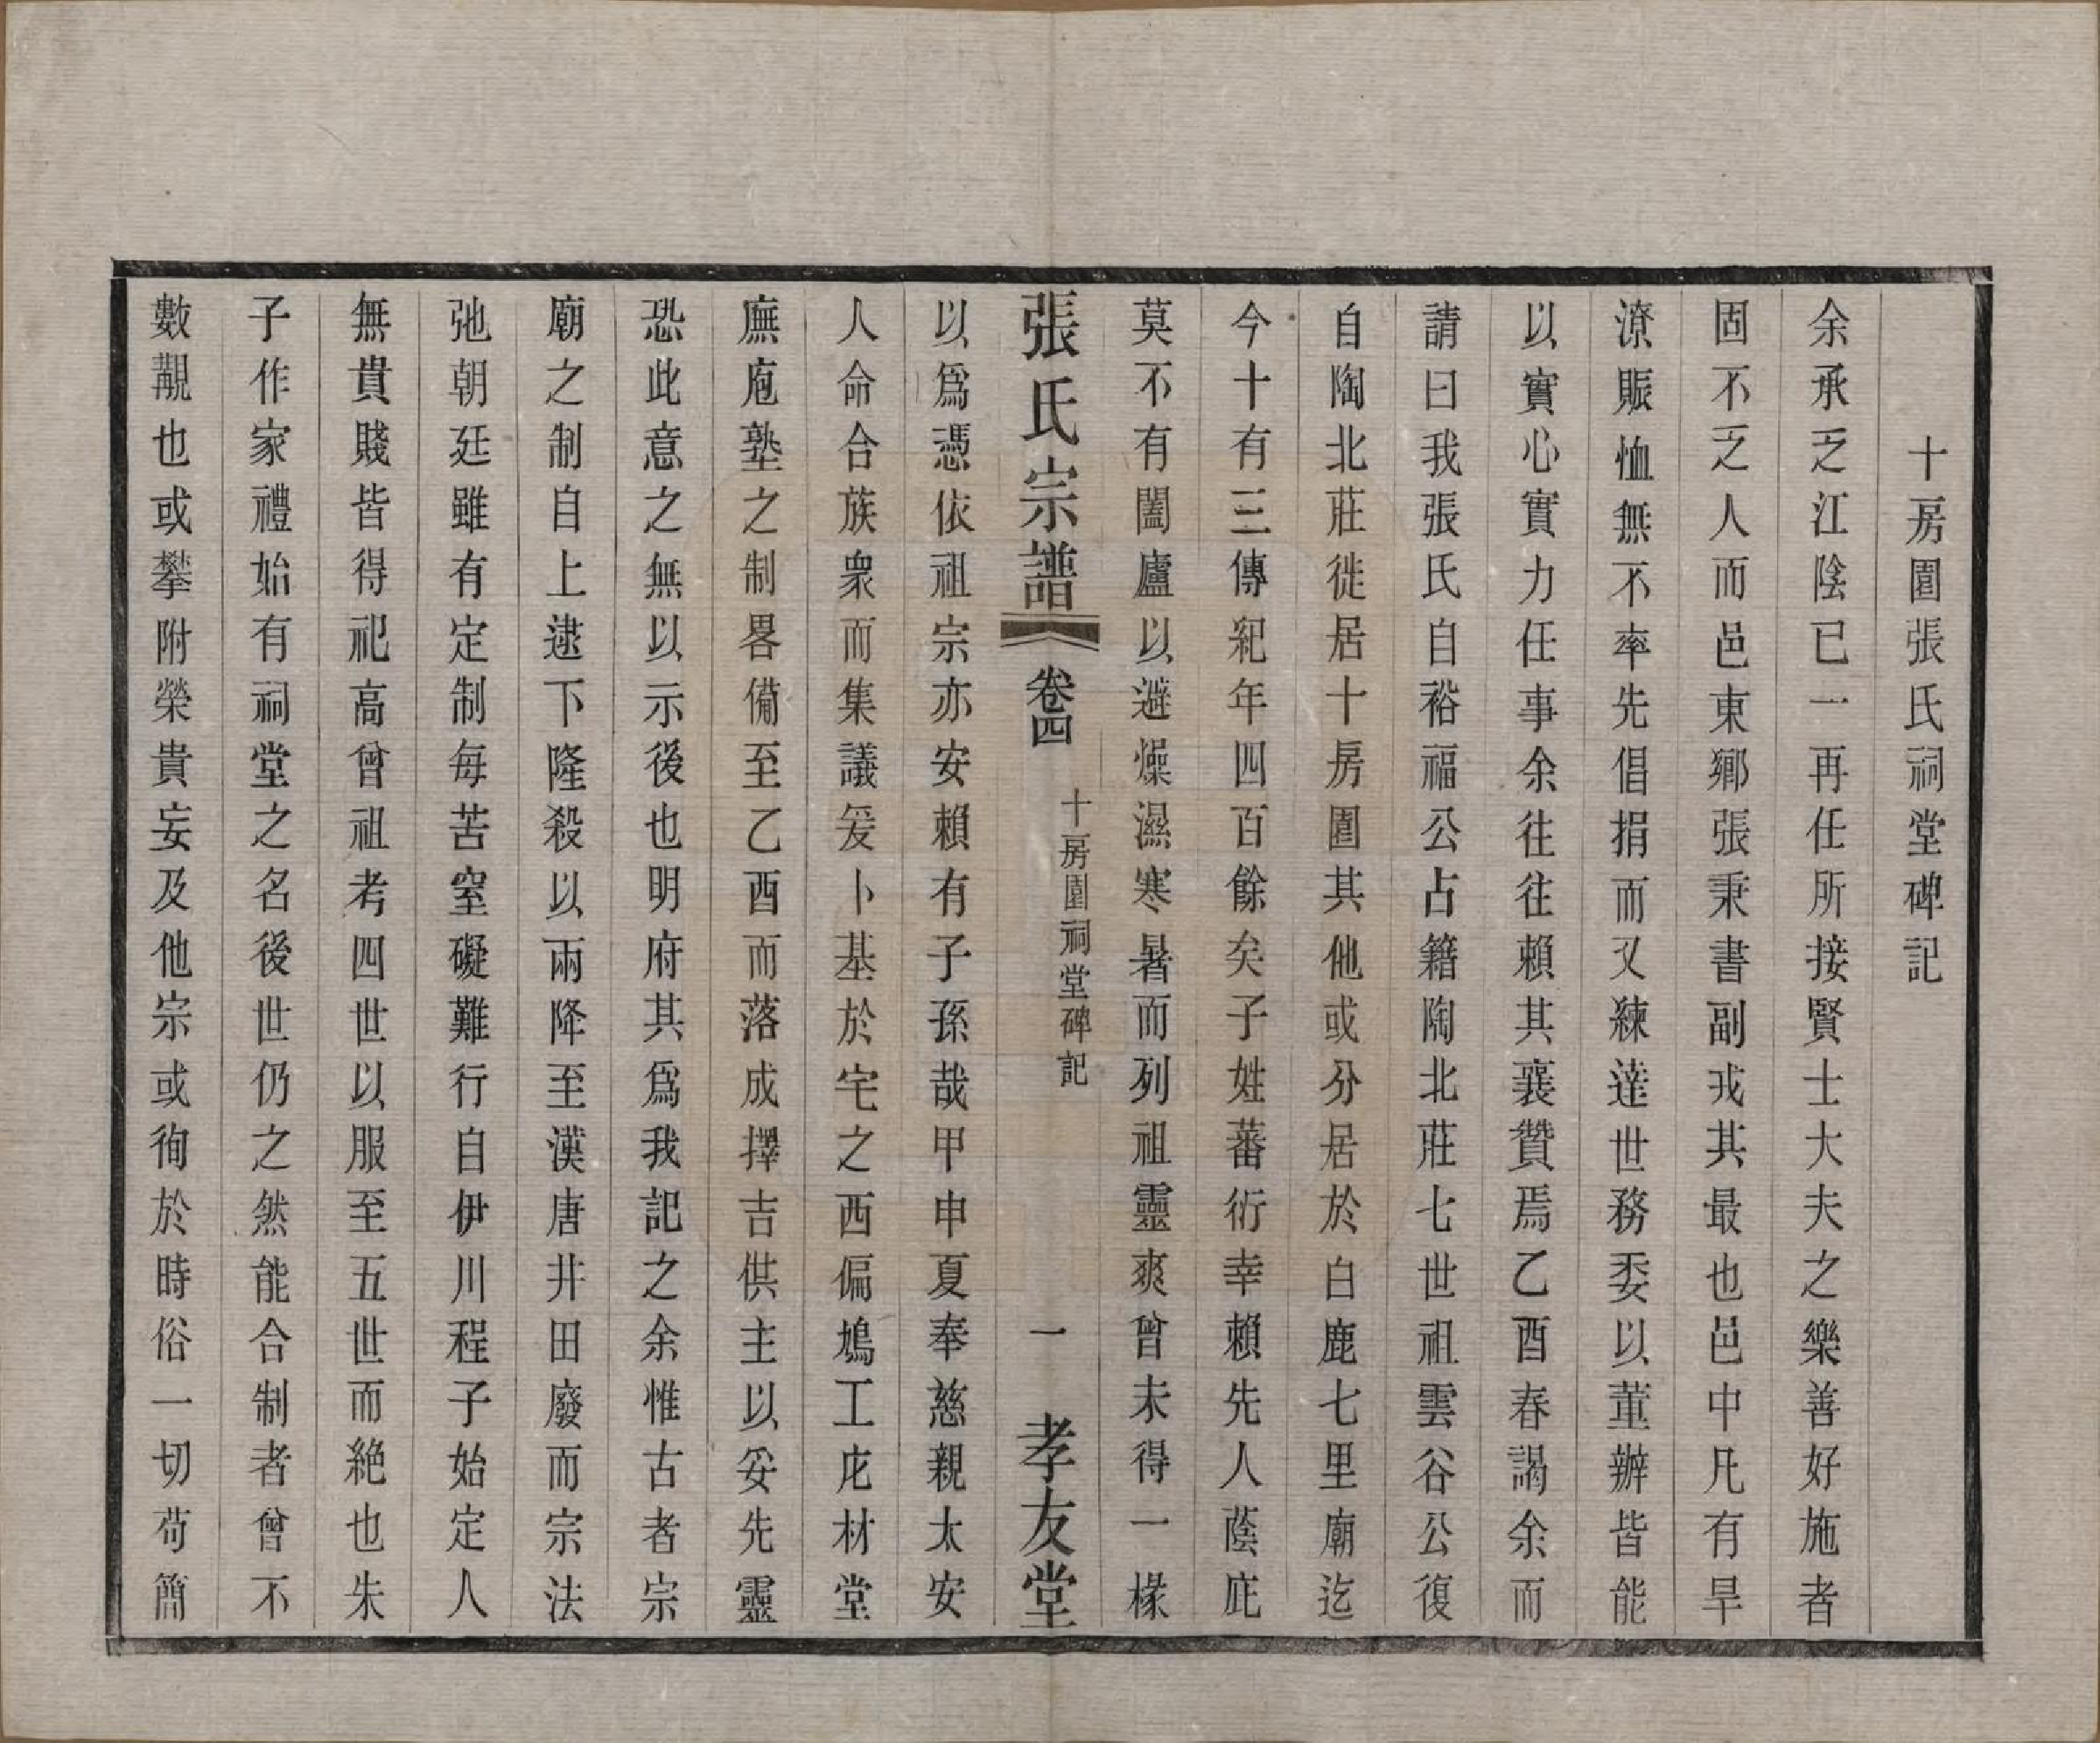 十房圍張氏祠堂碑記
余承乏江陰已一再任所接賢士大夫之樂善好施者
固不乏人而邑東鄉張秉書副戎其最也邑中凡有旱
潦賑恤無不率先倡捐而又練達世務委以董辦皆能
以實心實力任事余往往賴其襄贊焉乙酉春謁余而
請曰我張氏自裕福公占籍陶北莊七世祖雲谷公復
自陶北莊徙居十房圍其他或分居於白鹿七里廟迄
今十有三傳紀年四百餘矣子姓蕃衍幸賴先人蔭庇
莫不有闔廬以避燥濕寒暑而列祖靈爽曾未得一椽
張氏宗譜 卷四 十房圍祠堂碑記 一 孝友堂
以爲憑依祖宗亦安賴有子孫哉甲申夏奉慈親太安
人命合族衆而集議爰卜基於宅之西偏鳩工庀材堂
廡庖塾之制畧備至乙酉而落成擇吉供主以妥先靈
恐此意之無以示後也明府其爲我記之余惟古者宗
廟之制自上逮下隆殺以兩降至漢唐井田廢而宗法
弛朝廷雖有定制每苦窒礙難行自伊川程子始定人
無貴賤皆得祀高曾祖考四世以服至五世而絕也朱
子作家禮始有祠堂之名後世仍之然能合制者曾不
數覯也或攀附榮貴妄及他宗或徇於時俗一切苟簡